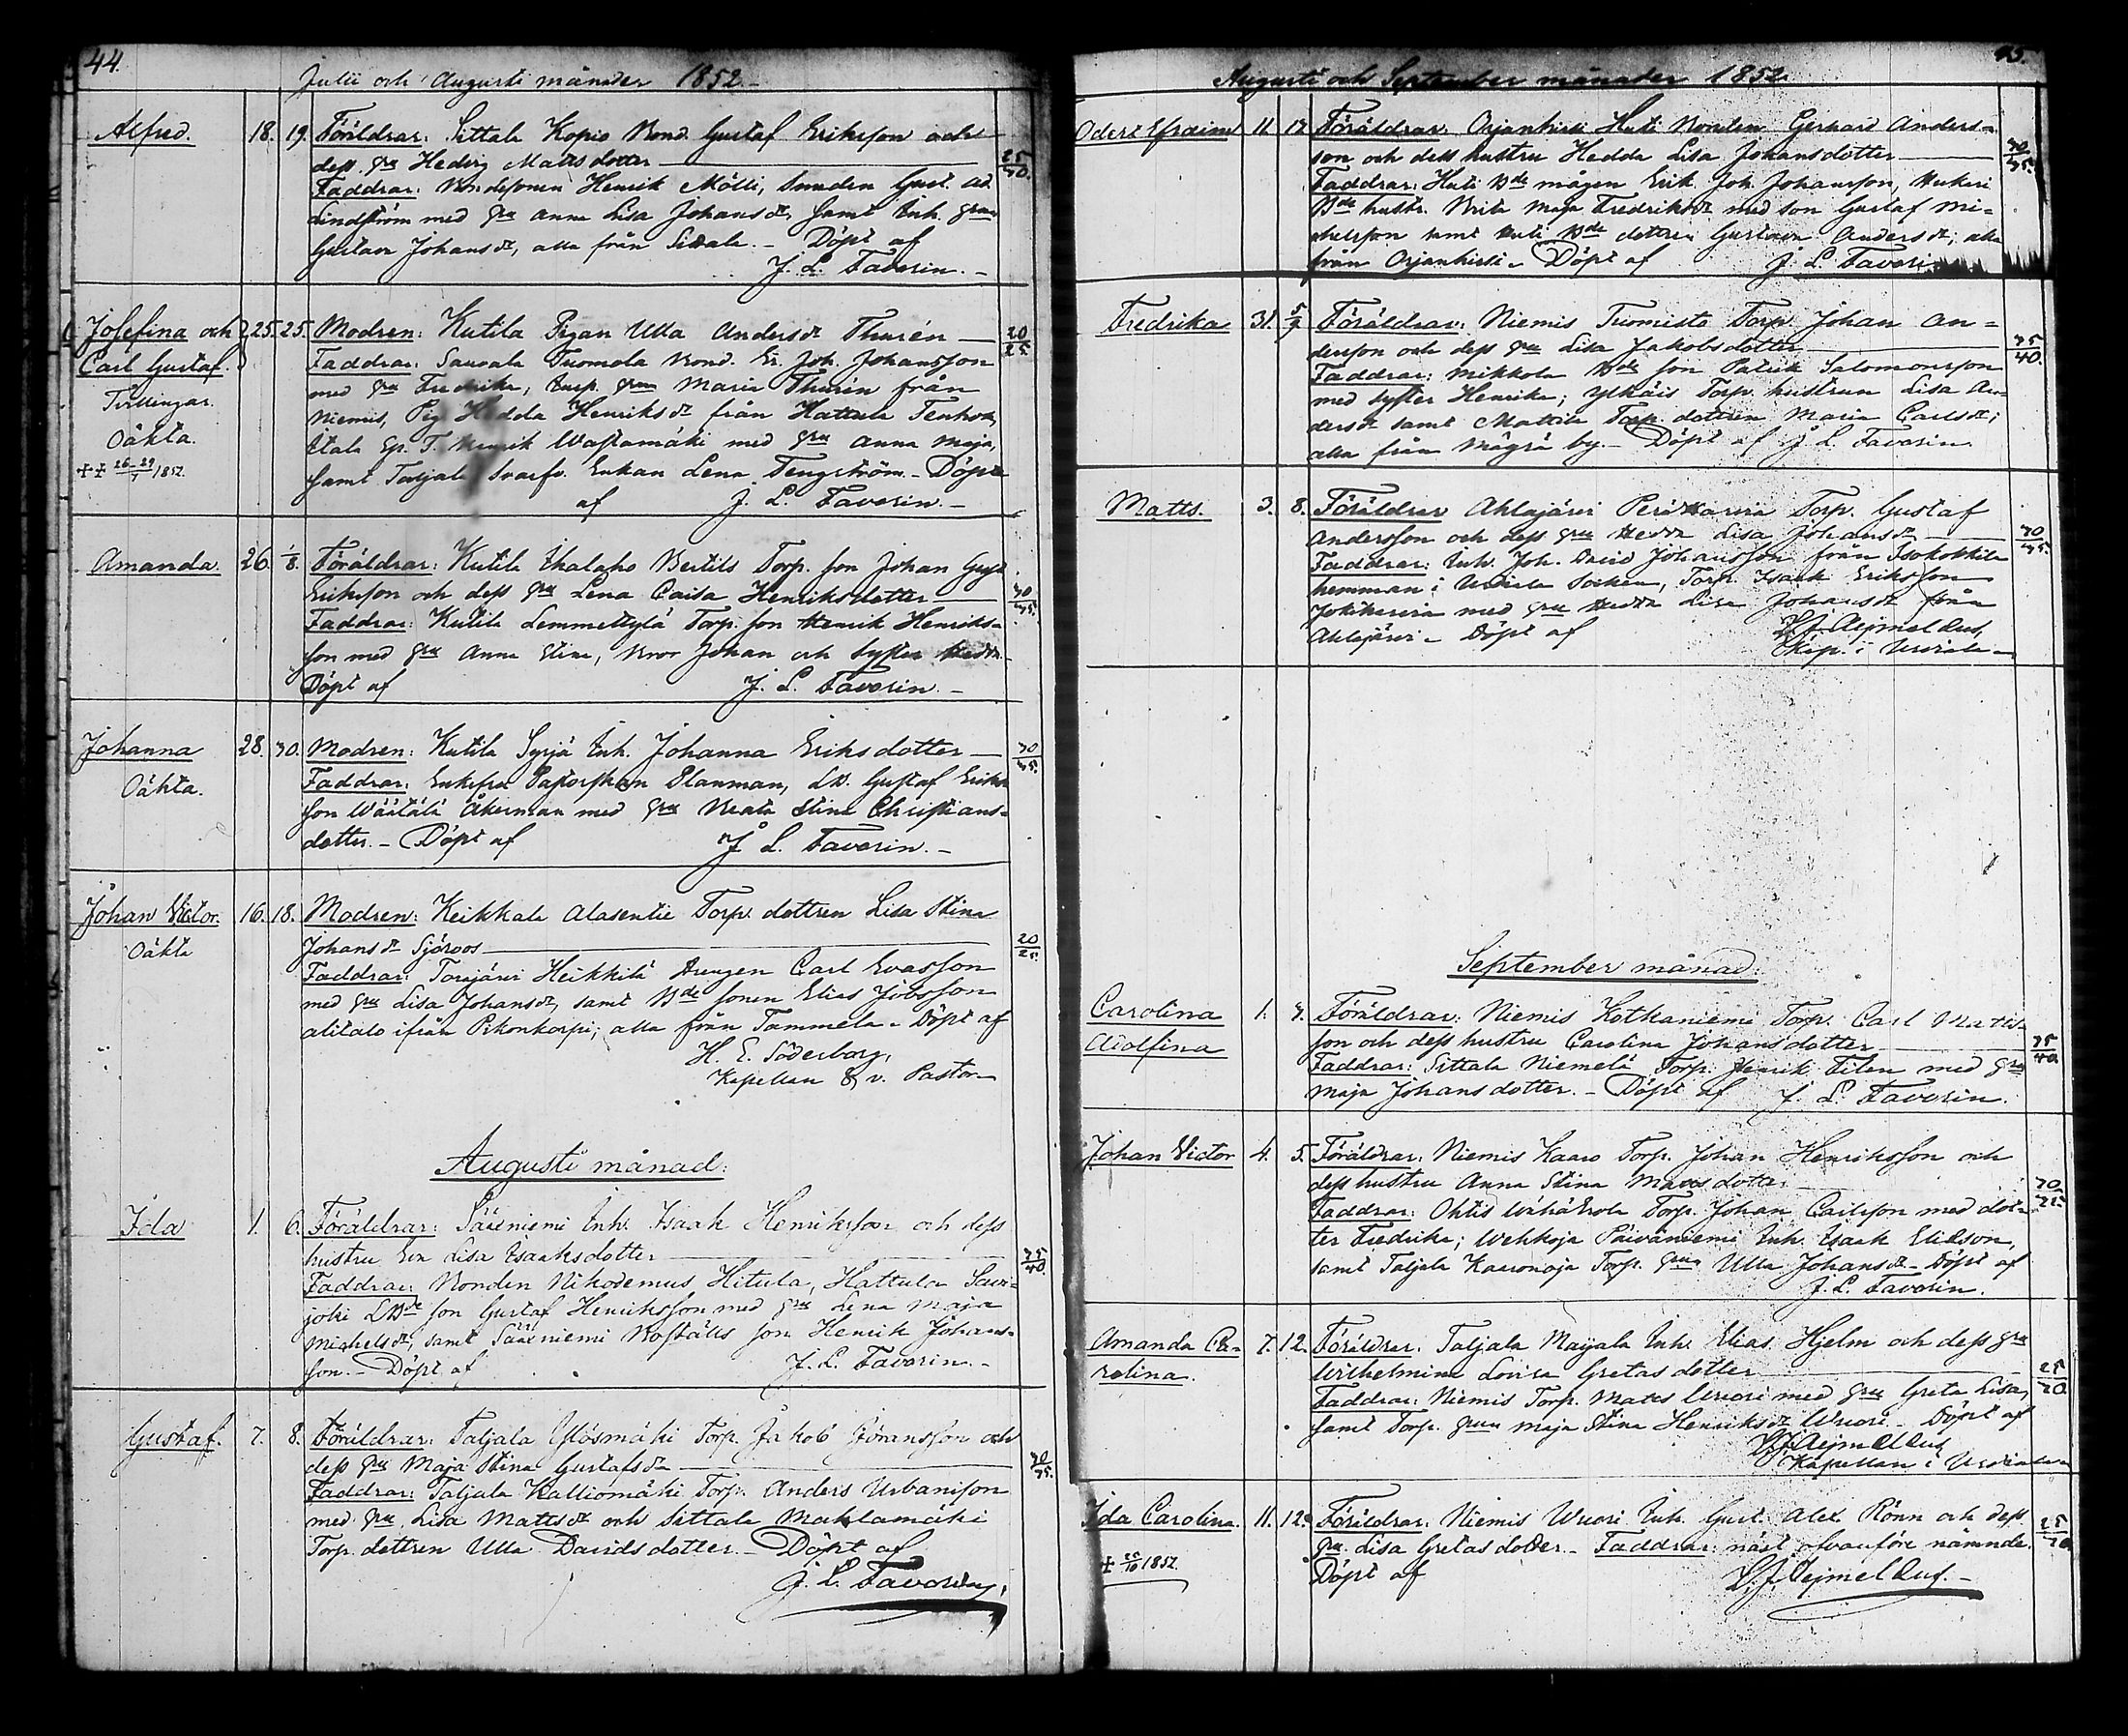 44.
Julii och Augusti månader 1852.-
Alfred. 18. 19. Föräldrar: Sittala Kopio Bond. Gustaf Eriksson och
dess hu Hedvig Mattsdotter 25/30.
Faddrar: Bondesonen Henrik Mölli, Smeden Gust. Ad.
Lindström med hu Anna Lisa Johansdr, samt Inh. hun
Gustava Johansdr, alla från Sittala. - Döpt af
J. L. Favorin. -
Josefina och 25. 25. Modren: Kutila Pigan Ulla Andersdr Thurén 20/25
Carl Gustaf.
Tvillingar.
Oäkta.
++ 26-29/7 1852.
Faddrar: Sauvala Tuomola Bond. Er. Joh. Johansson
med hu Fredrika, Insp. hun Maria Thurén från
Niemis, Pig. Hedda Henriksdr från Hattula Tenhola,
Itala Gp. T. Henrik Wastamäki med hu Anna Maja,
samt Taljala Svarfv. Enkan Lena Tengström. - Döpte
af J. L. Favorin. -
Amanda. 26. 1/8. Föräldrar: Kutila Ihalaho Bertils Torp. son Johan Gust.
Eriksson och dess hu Lena Caisa Henriksdotter 30/35.
Faddrar: Kutila Lemmettylä Torp. son Henrik Henriks-
son med hu Anna Stina, Bror Johan och syster Hedda.
Döpt af J. L. Favorin. -
Johanna 28. 30. Modren: Kutila Syrjä Inh. Johanna Eriksdotter 30/35.
Oäkta.
Faddrar: Enkefru Pastorskan Planman, LB. Gustaf Eriks-
son Wäätälä Åkerman med hu Beata Stina Christians-
dotter. - Döpt af J. L. Favorin. -
Johan Victor. 16. 18. Modren: Keikkala Alasentie Torp. dottren Lisa Stina
Oäkta
Johansdr Sjöroos 20/25.
Faddrar: Torajärvi Heikkilä Drengen Carl Evasson
med hu Lisa Johansdr, samt Bde sonen Elias Jobsson
Alitalo ifrån Pekonkorpi; alla från Tammela. - Döpt af
H. E. Söderborg,
Kapellan & v. Pastor.
Augusti månad:
Ida 1. 6. Föräldrar: Sääxniemi Inh. Isaak Henriksson och dess
hustru Eva Lisa Isaaksdotter 35/40.
Faddrar: Bonden Nikodemus Hitula, Hattula Savi-
joki LBde son Gustaf Henriksson med hu Lena Maja
Michelsdr, samt Sääxniemi Boställs son Henrik Johans-
son. - Döpt af J. L. Favorin. -
Gustaf. 7. 8. Föräldrar: Taljala Ylösmäki Torp. Jakob Göransson och
dess hu Maja Stina Gustafsdr 30/35.
Faddrar: Taljala Kalliomäki Torp. Anders Urbansson
med hu Lisa Mattsdr och Sittala Mahlamäki
Torp. dottren Ulla Davidsdotter. - Döpt af
J. L. Favorin,
45.
Augusti och September månader 1852.
Odert Efraim 11. 12. Föräldrar: Orjanhirsi Huti Bonden Gerhard Anders-
son och dess hustru Hedda Lisa Johansdotter 30/35.
Faddrar: Huti Bde mågen Erik Joh. Johansson, Hukari
Bde hustr. Brita Maja Fredriksdr med son Gustaf Mi-
chelsson samt Huti Bde dottren Gustava Andersdr; alla
från Orjanhirsi. - Döpt af J. L. Favorin
Fredrika 31. 5/9. Föräldrar: Niemis Tuomisto Torp. Johan An-
dersson och dess hu Lisa Jakobsdotter 35/40.
Faddrar: Mikkola Bde son Patrik Salomonsson
med syster Henrika; Ylhäis Torp. hustrun Lisa An-
dersdr samt Mattila Torp. dottren Maria Carlsdr;
alla från Mägrä by. - Döpt af J. L. Favorin
Matts. 3. 8. Föräldrar Ahlajärvi Perätkarira Torp. Gustaf
Andersson och dess hu Hedda Lisa Johansdr 30/35.
Faddrar: Inh. Joh. David Johansson från Isokokkila
hemman i Urdiala Socken, Torp. Isaak Eriksson
Jokikarira med hu Hedda Lisa Johansdr från
Ahlajärvi. - Döpt af L. J. Aejmelæus,
Kap. i Urdiala.
September månad:
Carolina 1. 4. Föräldrar: Niemis Kotkaniemi Torp. Carl Matts-
Adolfina
son och dess hustru Carolina Johansdotter 35/40.
Faddrar: Sittala Niemelä Torp. Henrik Filen med hu
Maja Johansdotter. - Döpt af J. L. Favorin.
Johan Victor 4. 5. Föräldrar: Niemis Kaaro Torp. Johan Henriksson och
dess hustru Anna Stina Mattsdotter 30/35.
Faddrar: Ohtis Wähäkrola Torp. Johan Carlsson med dot-
ter Fredrika; Wehkoja Päiväniemi Inh. Isaak Eliesson,
samt Taljala Kaaronoja Torp. hun Ulla Johansdr. - Döpt af
J. L. Favorin.
Amanda Ca- 7. 12. Föräldrar: Taljala Maijala Inh. Elias Hjelm och dess hu
rolina.
Wilhelmina Lovisa Gretasdotter 25/30
Faddrar: Niemis Torp. Matts Wuori med hu Greta Lisa,
samt Torp. hun Maja Stina Henriksdr Wuori. - Döpt af
L. J. Aejmelæus
Kapellan i Urdiala
Ida Carolina. 11. 12. Föräldrar: Niemis Wuori Inh. Gust. Alex. Rönn och dess 25/30
+ 25/10 1852.
hu Lisa Gretasdotter. - Faddrar: näst ofvanföre nämnde.
Döpt af L. J. Aejmelæus. -